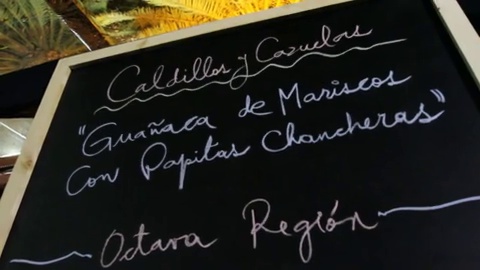 Caldillos y Cazuelas
"Guañaca de Mariscos
Con Papitas Chancheras"
Octava Región